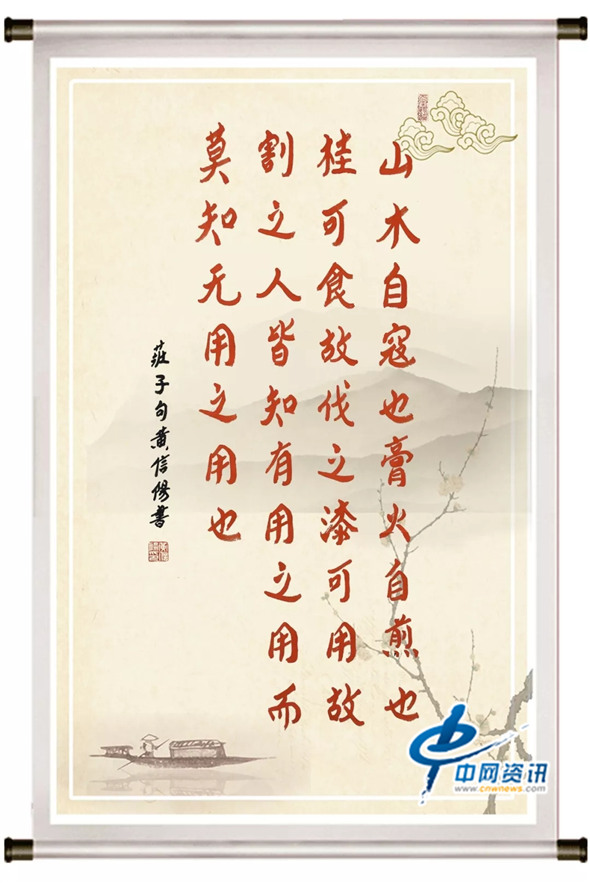 山木自寇也膏火自煎也
桂可食故伐之漆可用故
割之人皆知有用之用而
莫知无用之用也
莊子句黄信阳書
中网资讯
www.cnwnews.com